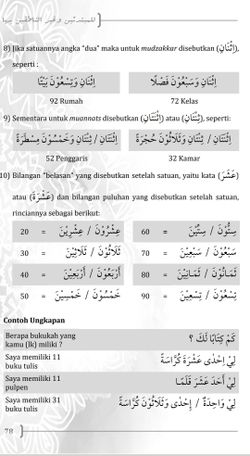 8) Jika satuannya angka "dua" maka untuk mudzakkar disebutkan (اِثْنَانِ),
seperti :
اِثْنَانِ وَتِسْعُوْنَ بَيْتًا
اِثْنَانِ وَسَبْعُوْنَ فَصْلًا
92 Rumah
72 Kelas
9) Sementara untuk muannats disebutkan (اِثْنَتَانِ) atau (ثِنْتَانِ), seperti:
اِثْنَتَانِ / ثِنْتَانِ وَخَمْسُوْنَ مِسْطَرَةً
اِثْنَتَانِ / ثِنْتَانِ وَثَلَاثُوْنَ حُجْرَةً
52 Penggaris
32 Kamar
10) Bilangan "belasan" yang disebutkan setelah satuan, yaitu kata (عَشَرَ)
atau (عَشْرَةَ) dan bilangan puluhan yang disebutkan setelah satuan,
rinciannya sebagai berikut:
20 = عِشْرُوْنَ / عِشْرِيْنَ
60 = سِتُّوْنَ / سِتِّيْنَ
30 = ثَلَاثُوْنَ / ثَلَاثِيْنَ
70 = سَبْعُوْنَ / سَبْعِيْنَ
40 = أَرْبَعُوْنَ / أَرْبَعِيْنَ
80 = ثَمَانُوْنَ / ثَمَانِيْنَ
50 = خَمْسُوْنَ / خَمْسِيْنَ
90 = تِسْعُوْنَ / تِسْعِيْنَ
Contoh Ungkapan
Berapa bukukah yang
kamu (lk) miliki ?
كَمْ كِتَابًا لَكَ ؟
Saya memiliki 11
buku tulis
لِيْ إِحْدَى عَشْرَةَ كُرَّاسَةً
Saya memiliki 11
pulpen
لِيْ أَحَدَ عَشَرَ قَلَمًا
Saya memiliki 31
buku tulis
لِيْ وَاحِدَةٌ / إِحْدَى وَثَلَاثُوْنَ كُرَّاسَةً
78